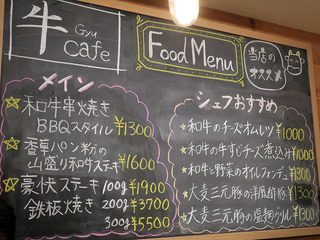 牛
Gyu
Cafe
Food Menu
当店の
メイン
☆和牛串焼き
BBQスタイル ¥1300
☆香草パン粉の
山盛り和牛ステキ ¥1600
☆豪快ステーキ 100g ¥1900
鉄板焼き 200g ¥3700
300g ¥5500
シェフおすすめ
★和牛のチーズオムレツ ¥1000
★和牛の牛すじチーズ煮込み ¥1000
★和牛と野菜のオイルフォンデュ ¥1300
★大麦三元豚の洋風酢豚 ¥1300
★大麦三元豚の塩麹グリル ¥1300